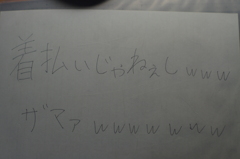 着払いじゃねぇしwww
ザマァwwwwwww